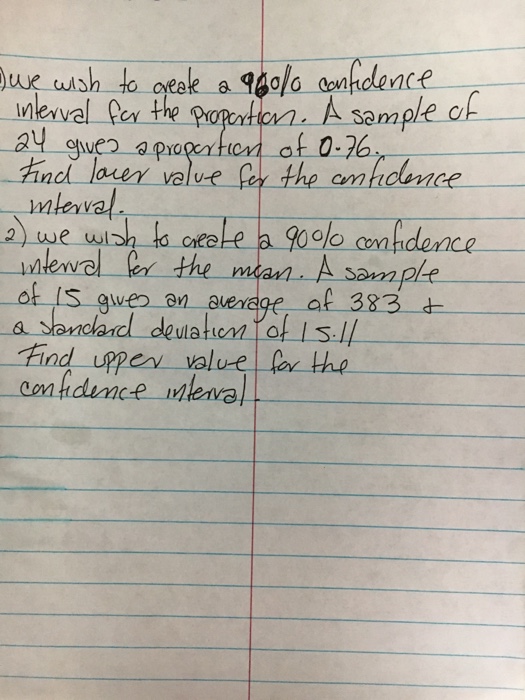 1) we wish to create a 90% confidence
interval for the proportion. A sample of
24 gives a proportion of 0.76.
Find lower value for the confidence
interval.
2) we wish to create a 90% confidence
interval for the mean. A sample
of 15 gives an average of 383 &
a standard deviation of 15.11
Find upper value for the
confidence interval.